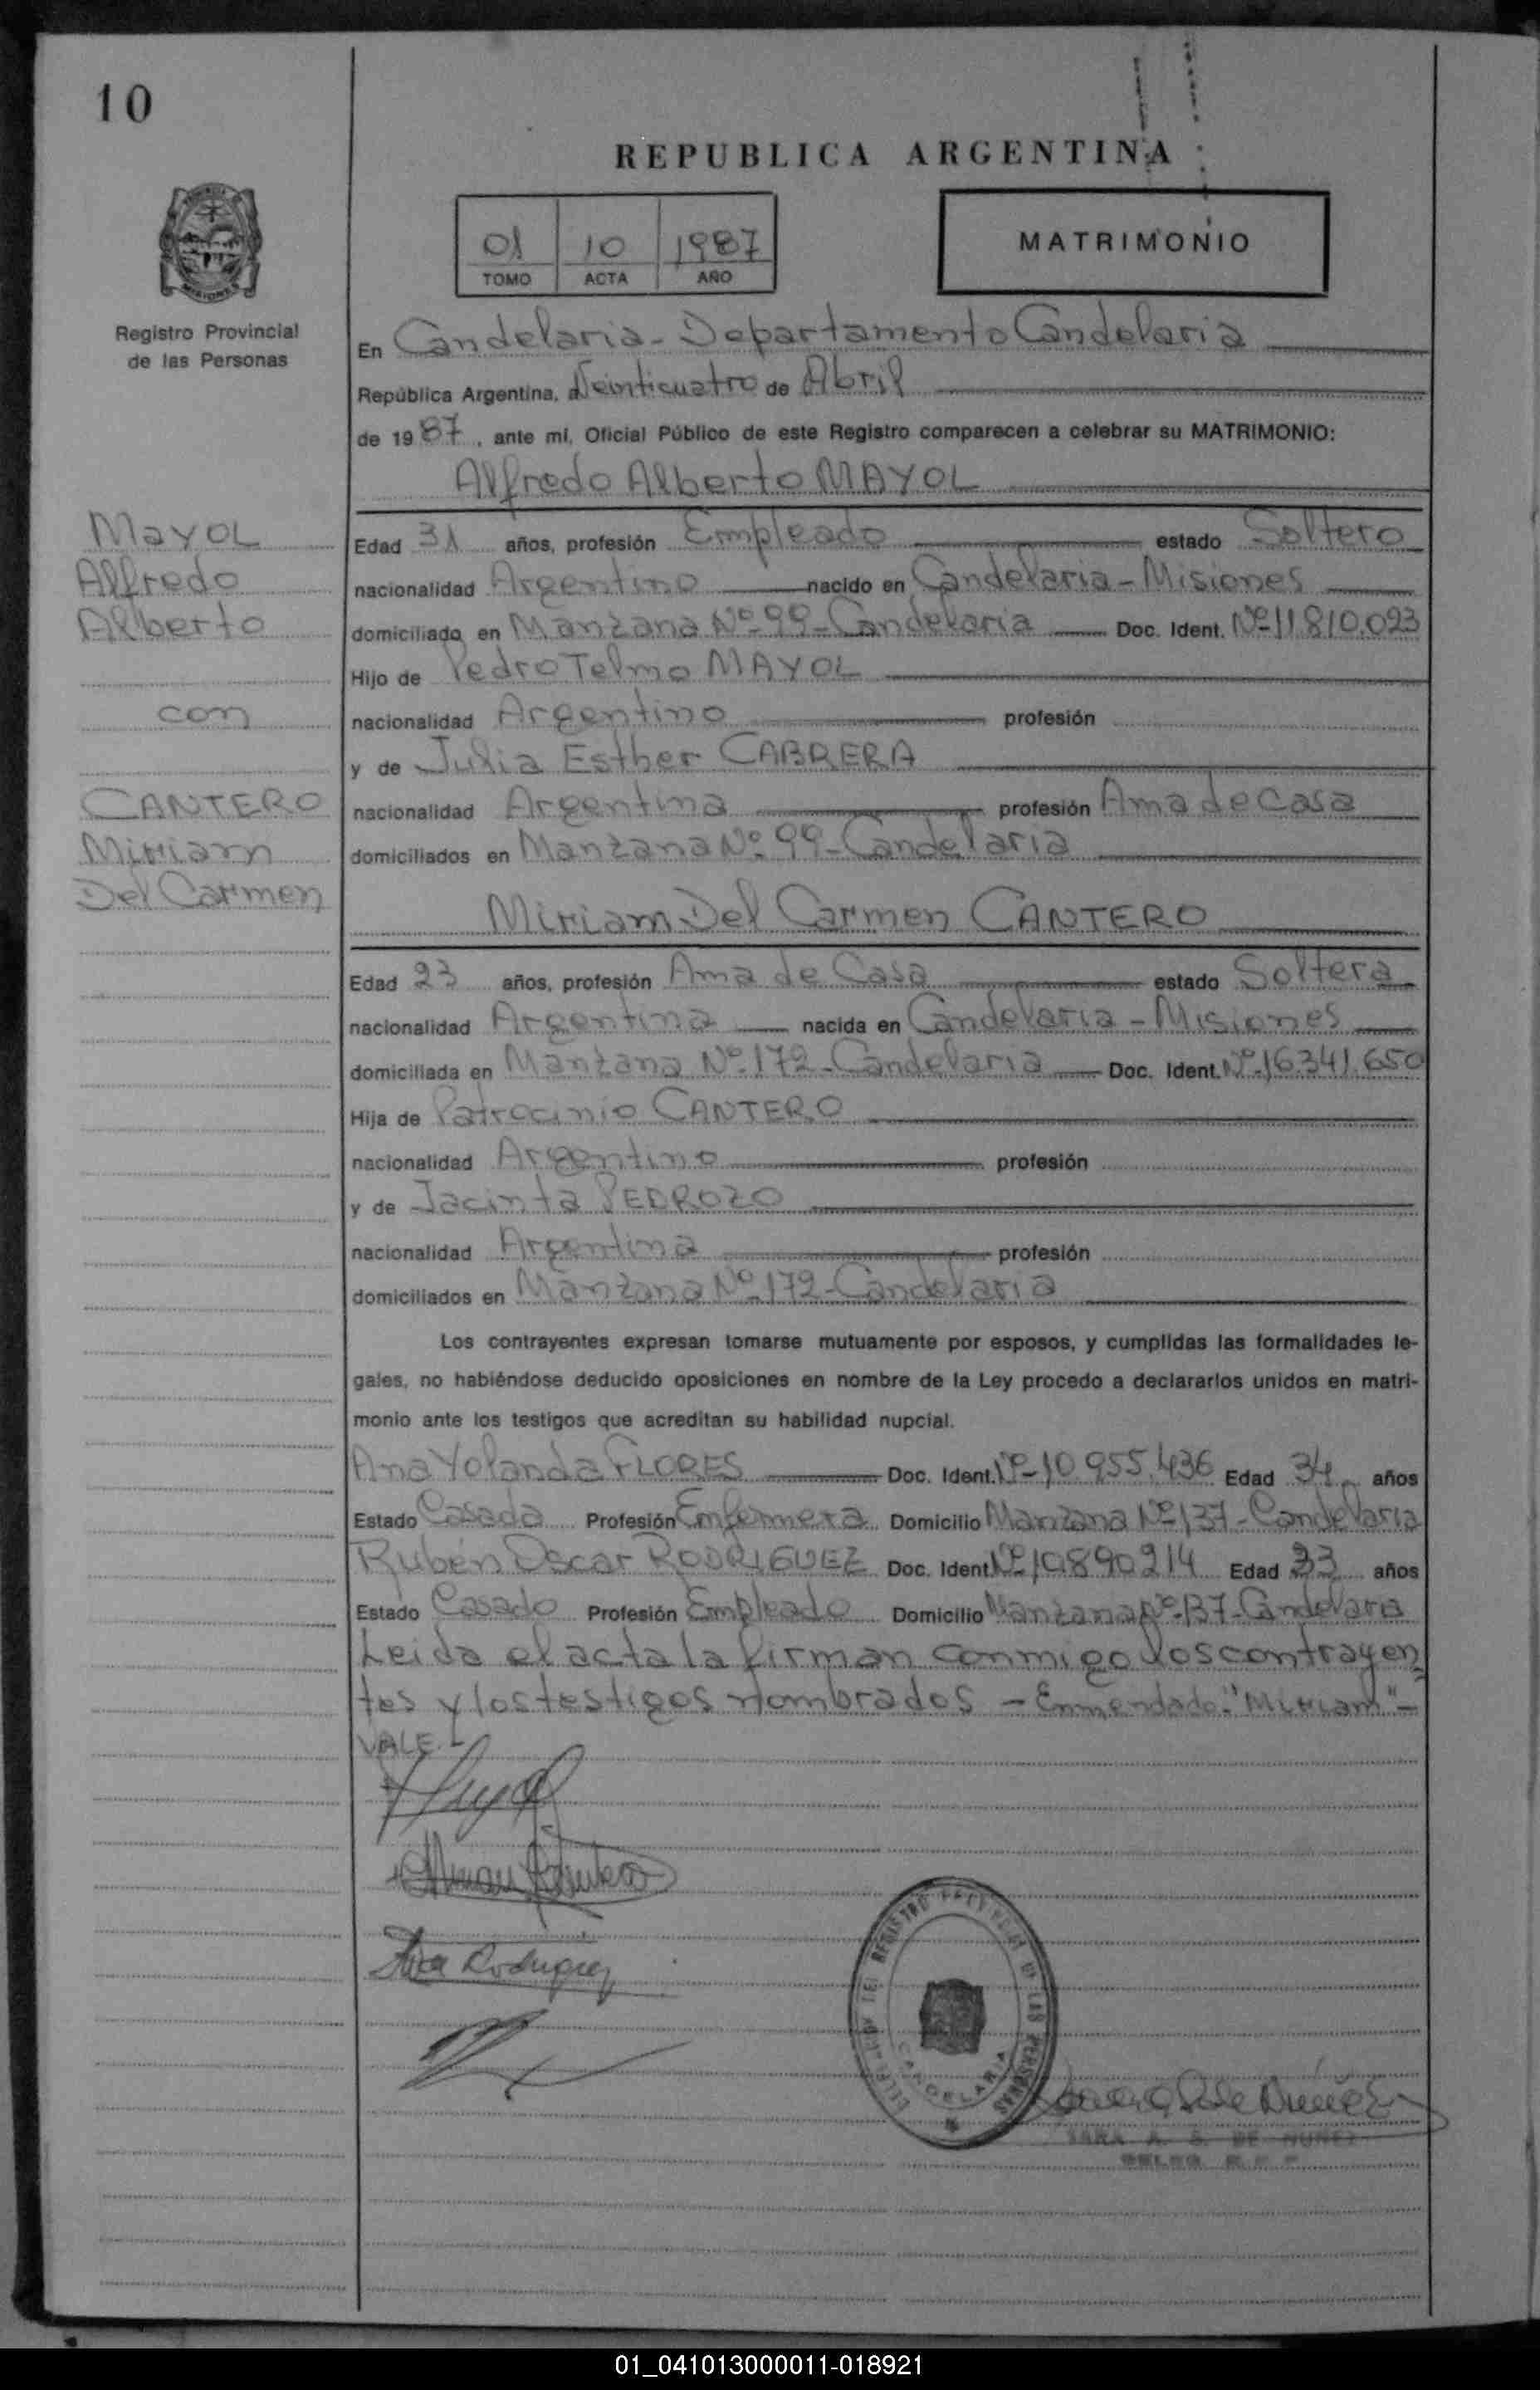 10
REPUBLICA ARGENTINA
01 10 1987
TOMO ACTA AÑO
MATRIMONIO
MISIONES
Registro Provincial
de las Personas
En Candelaria - Departamento Candelaria
República Argentina, a Veinticuatro de Abril
de 1987, ante mí, Oficial Público de este Registro comparecen a celebrar su MATRIMONIO:
Alfredo Alberto MAYOL
Mayol
Alfredo
Alberto
con
CANTERO
Miriam
Del Carmen
Edad 31 años, profesión Empleado estado Soltero
nacionalidad Argentino nacido en Candelaria - Misiones
domiciliado en Manzana Nº 99 - Candelaria Doc. Ident. Nº 11.810.093
Hijo de Pedro Telmo MAYOL
nacionalidad Argentino profesión
y de Julia Esther CABRERA
nacionalidad Argentina profesión Ama de Casa
domiciliados en Manzana Nº 99 - Candelaria
Miriam Del Carmen CANTERO
Edad 23 años, profesión Ama de Casa estado Soltera
nacionalidad Argentina nacida en Candelaria - Misiones
domiciliada en Manzana Nº 172 - Candelaria Doc. Ident. Nº 16.341.650
Hija de Patrocinio CANTERO
nacionalidad Argentino profesión
y de Jacinta PEDROZO
nacionalidad Argentina profesión
domiciliados en Manzana Nº 172 - Candelaria
Los contrayentes expresan tomarse mutuamente por esposos, y cumplidas las formalidades le-
gales, no habiéndose deducido oposiciones en nombre de la Ley procedo a declararlos unidos en matri-
monio ante los testigos que acreditan su habilidad nupcial.
Ana Yolanda FLORES Doc. Ident. Nº 10.955.436 Edad 34 años
Estado Casada Profesión Enfermera Domicilio Manzana Nº 137 - Candelaria
Rubén Oscar RODRIGUEZ Doc. Ident. Nº 10890214 Edad 33 años
Estado Casado Profesión Empleado Domicilio Manzana Nº 137 - Candelaria
Leida el acta la firman conmigo los contrayen
tes y los testigos nombrados - Enmendado: "Miriam" -
VALE.-
Ana Rodriguez
REGISTRO PROVINCIAL DE LAS PERSONAS
CANDELARIA
SARA A. S. DE NUÑEZ
01_041013000011-018921